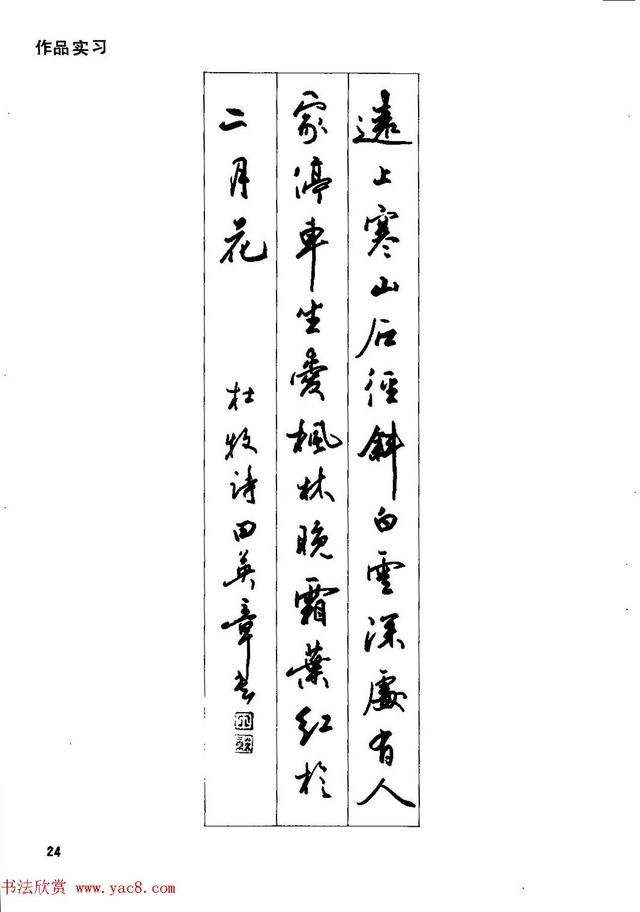 作品实习
遠上寒山石徑斜白雲深處有人
家停車坐愛楓林晚霜葉紅於
二月花
杜牧诗田英章书
24
书法欣赏 www.yac8.com